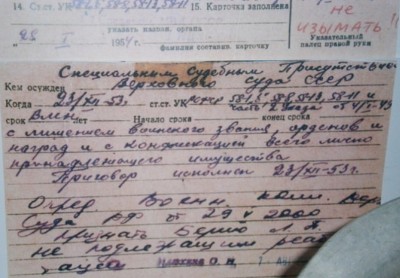 14. Ст.ст. УК 58-1, 58-8, 58-13, 58-11
15. Карточка заполнена
не
изымать!!
указать наимен. органа
28 I 1954 г.
фамилия составит. карточку
Указательный
палец правой руки
Специальным Судебным Присутствием
Верховного суда СССР
Кем осужден
Когда 23/XII-53г. ст.ст. УК 58-8, 58-13, 58-11 и
срок ВМН Начало срока конец срока
с лишением воинского звания, орденов и
наград и с конфискацией всего лично
принадлежащего имущества
Приговор исполнен 23/XII-53г.
Опред. Воен. колл. Верх.
Суда РФ от 29 V 2000
признать Берию Л. П.
не подлежащим реаб